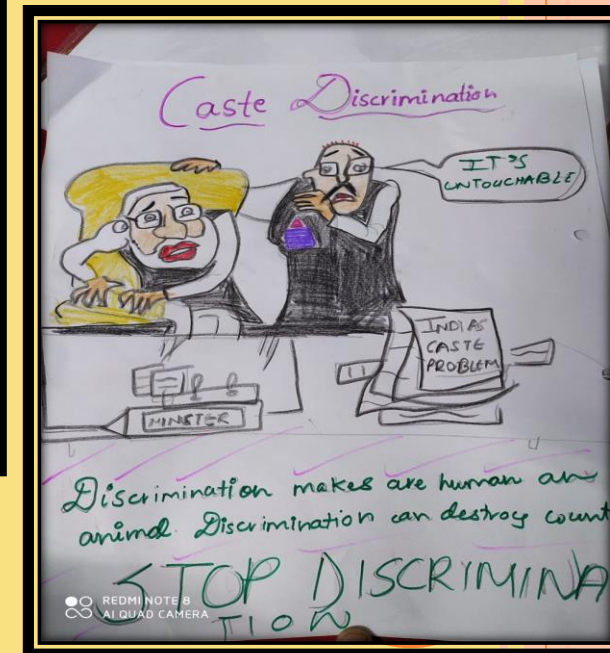 Caste Discrimination
IT'S
UNTOUCHABLE
INDIAS
CASTE
PROBLEM
MINSTER
Discrimination makes are human an
animal. Discrimination can destroy count
STOP DISCRIMINA
TION
REDMI NOTE 8
AI QUAD CAMERA